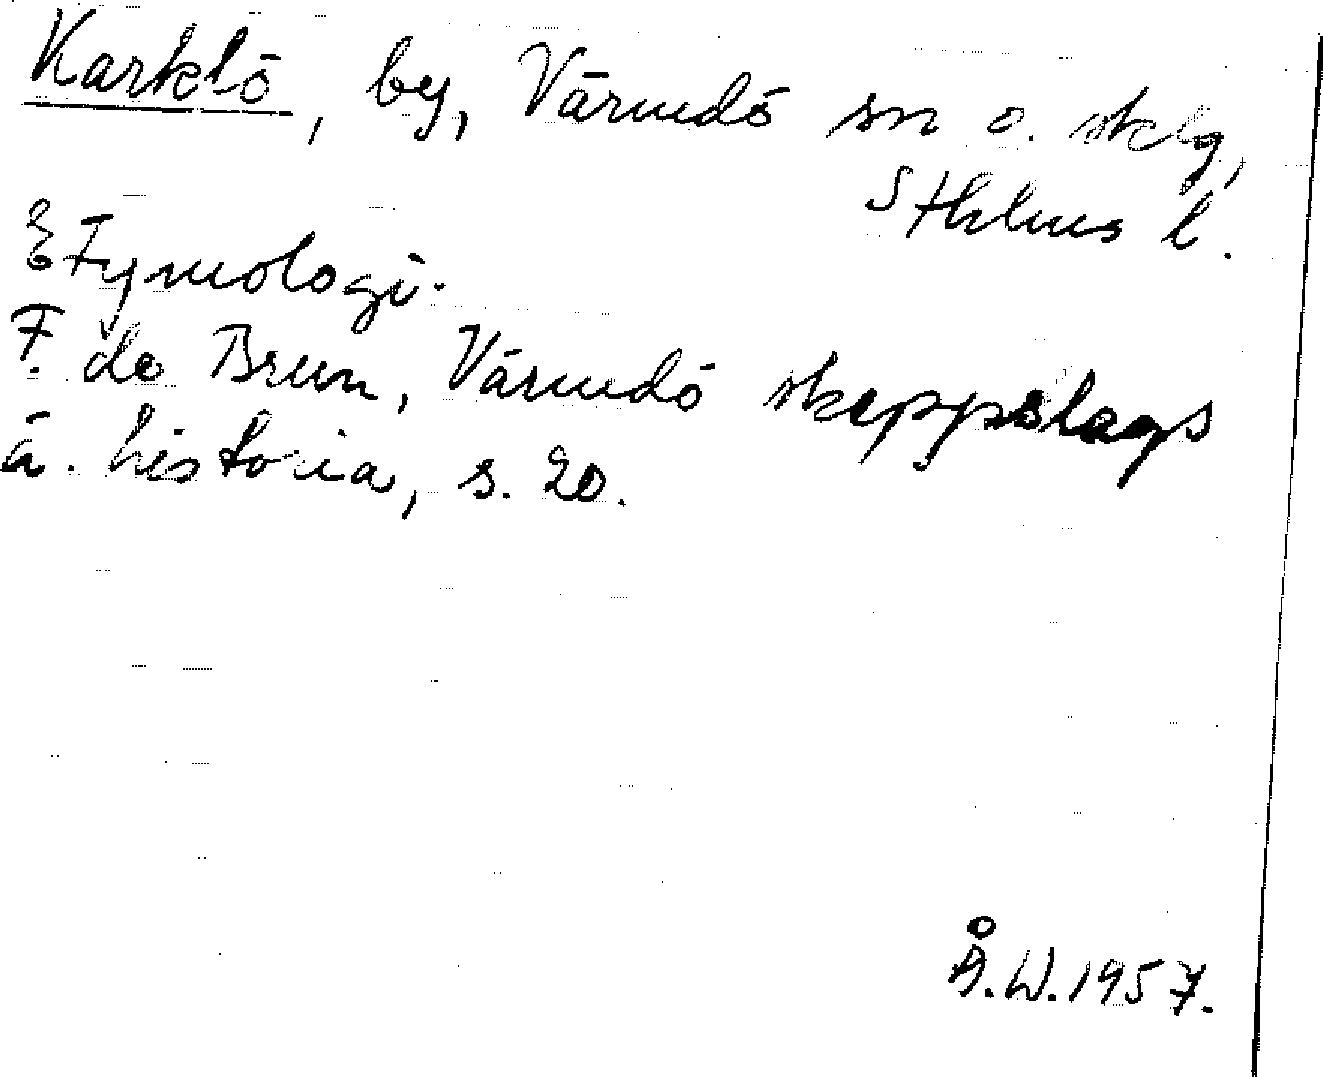 Karklö, by, Värmdö sn o. sklg,
Sthlms l.
Etymologi.
F. de Brun, Värmdö skeppslags
ä. historia, s. 20.
Å.W. 1957.